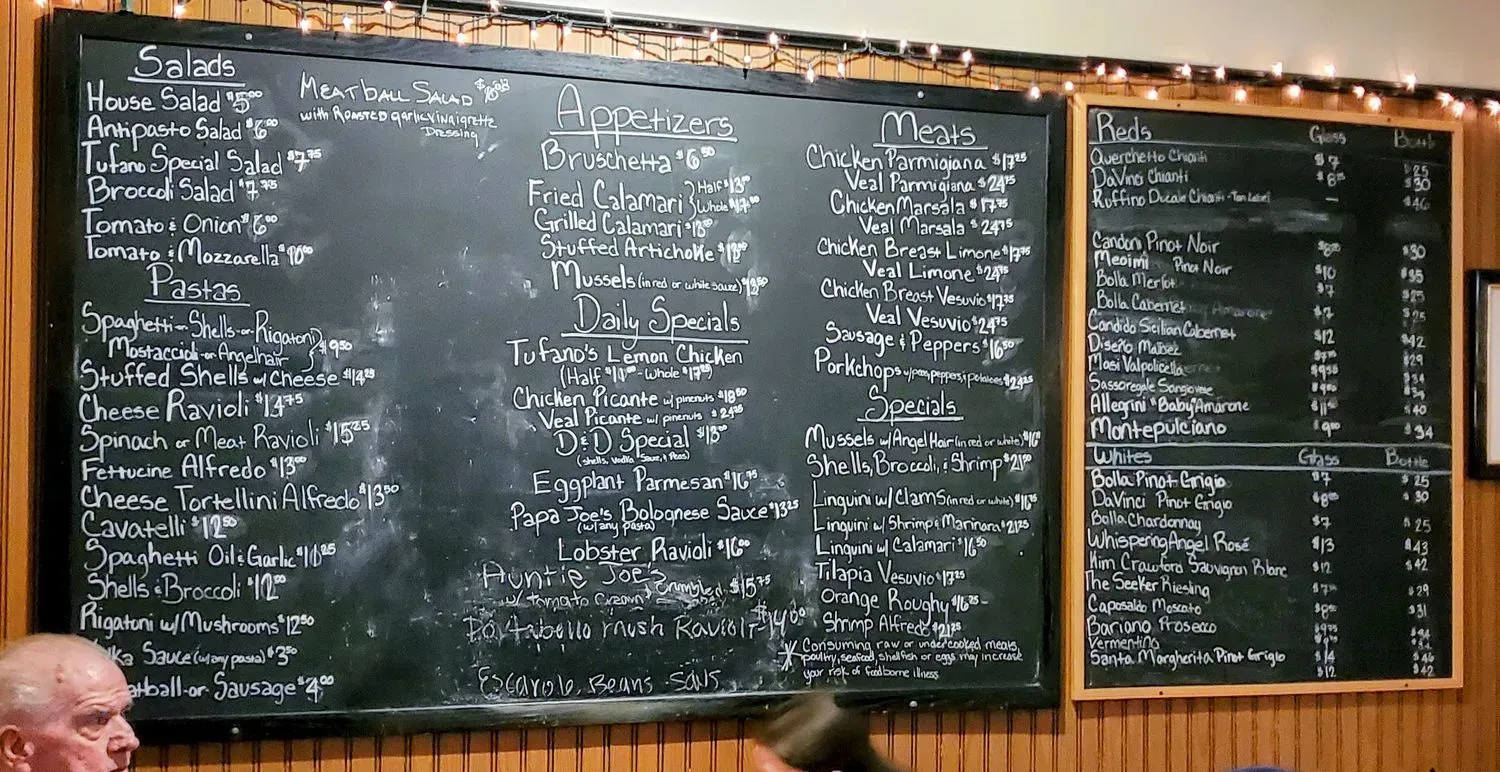 Salads
House Salad $5.00
Antipasto Salad $6.00
Tufano Special Salad $7.75
Broccoli Salad $7.75
Tomato & Onion $6.00
Tomato & Mozzarella $10.00
Meatball Salad
with Roasted garlic Vinaigrette
Dressing
Pastas
Spaghetti-or-Shells-or-Rigatoni
Mostaccioli-or-Angelhair } $9.50
Stuffed Shells w/ Cheese $14.25
Cheese Ravioli $14.75
Spinach or Meat Ravioli $15.25
Fettucine Alfredo $13.00
Cheese Tortellini Alfredo $13.50
Cavatelli $12.50
Spaghetti Oil & Garlic $10.25
Shells & Broccoli $12.00
Rigatoni w/ Mushrooms $12.50
Sauce (w/ any pasta) $3.50
or Sausage $4.00
Appetizers
Bruschetta $6.50
Fried Calamari } Half $13.00
Whole $17.00
Grilled Calamari $13.00
Stuffed Artichoke
Mussels (in red or white sauce)
Daily Specials
Tufano's Lemon Chicken
(Half - Whole )
Chicken Picante w/ pinenuts $18.50
Veal Picante w/ pinenuts $24.25
D&D Special $13.00
(shells, vodka sauce, & peas)
Eggplant Parmesan $16.75
Papa Joe's Bolognese Sauce $13.25
(w/ any pasta)
Lobster Ravioli $16.00
Auntie Joe's
w/ tomato cream & $15.75
Portabello mush Ravioli $14.00
Escarole, Beans, Saus
Meats
Chicken Parmigiana $17.25
Veal Parmigiana $24.75
Chicken Marsala $17.75
Veal Marsala $24.75
Chicken Breast Limone $17.75
Veal Limone $24.75
Chicken Breast Vesuvio $17.75
Veal Vesuvio $24.75
Sausage & Peppers $16.50
Porkchops w/ peas, peppers, & potatoes
Specials
Mussels w/ Angel Hair (in red or white)
Shells, Broccoli, & Shrimp $21.50
Linguini w/ Clams (in red or white) $16.75
Linguini w/ Shrimp & Marinara $21.25
Linguini w/ Calamari $16.50
Tilapia Vesuvio $17.25
Orange Roughy $16.25
Shrimp Alfredo $21.25
* Consuming raw or undercooked meats,
poultry, seafood, shellfish or eggs may increase
your risk of foodborne illness
Reds Glass
Querchetto Chianti $7 $25
DaVinci Chianti $30
Ruffino Ducale Chianti - Tan Label — $46
Candoni Pinot Noir $30
Meoimi Pinot Noir $10 $35
Bolla Merlot $7 $25
Bolla Cabernet $7 $25
Candido Sicilian Cabernet $12 $42
Diseño Malbec $29
Masi Valpolicella
Sassoregale Sangiovese
Allegrini "Baby" Amarone $40
Montepulciano $9.00 $34
Whites Glass Bottle
Bolla Pinot Grigio $7 $25
DaVinci Pinot Grigio $30
Bolla Chardonnay $7 $25
Whispering Angel Rosé $13 $43
Kim Crawford Sauvignon Blanc $12 $42
The Seeker Riesling $29
Caposaldo Moscato $31
Bariano Prosecco
Vermentino
Santa Margherita Pinot Grigio